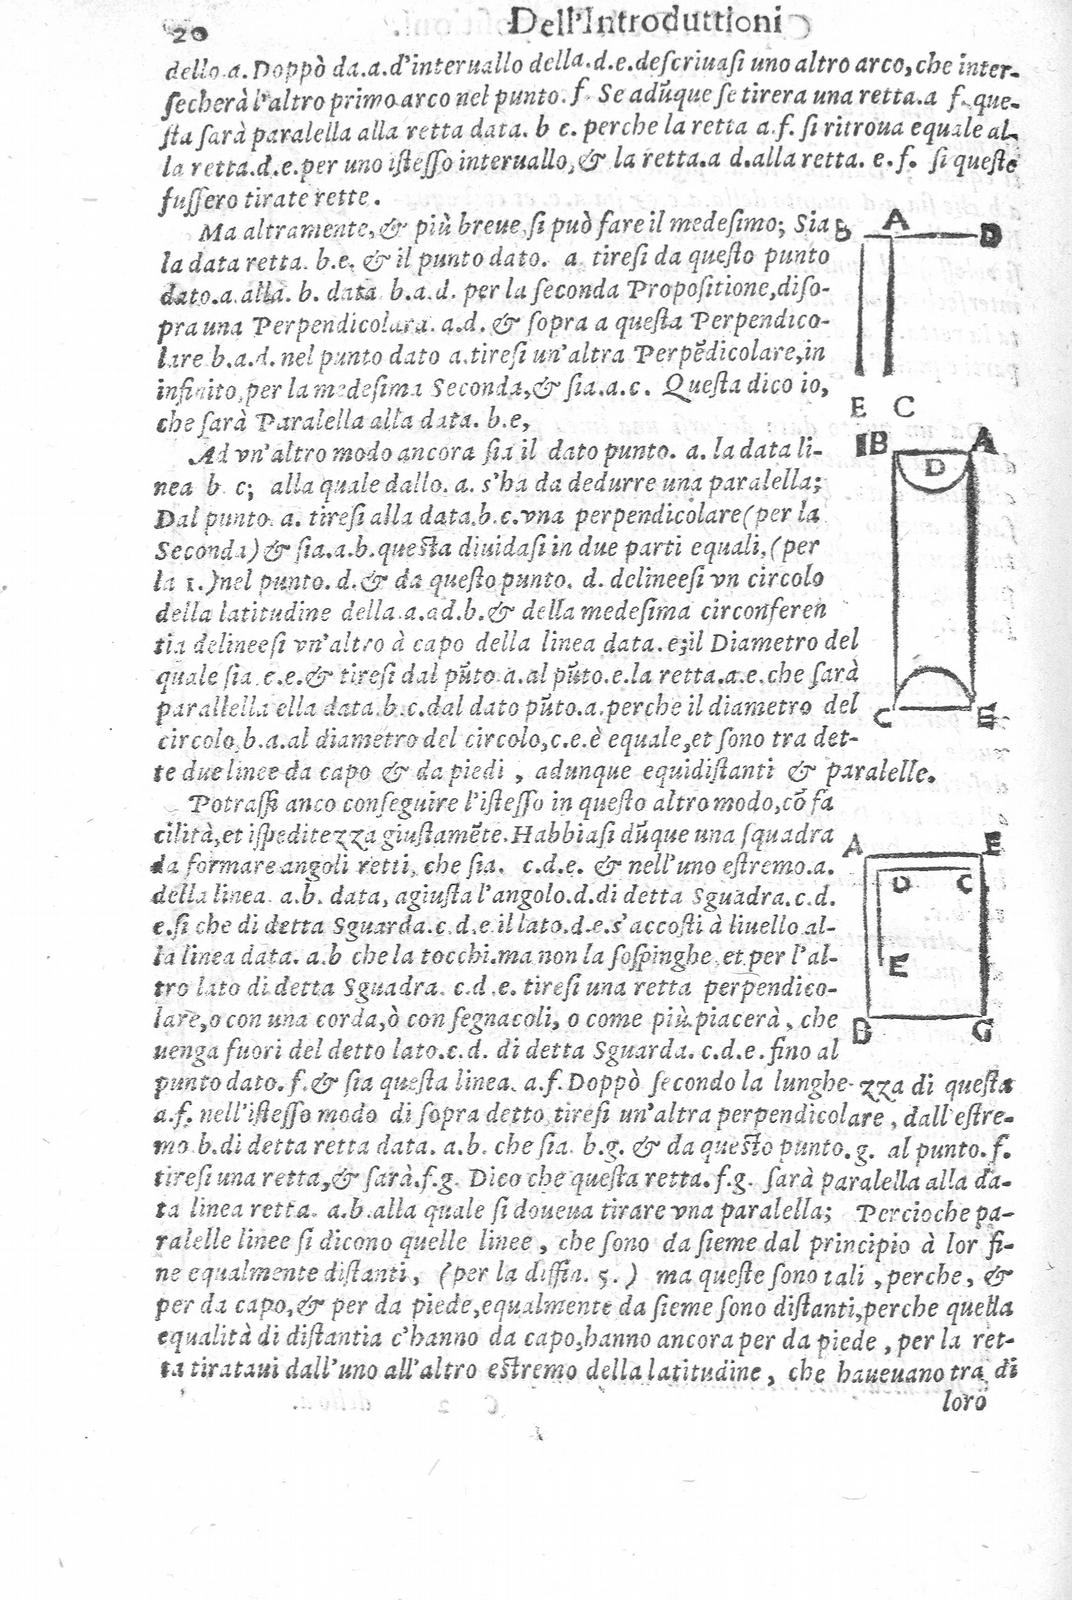 20
Dell'Introduttioni
dello.a. Doppò da.a.d'interuallo della.d.e.deſcriuaſi uno altro arco, che inter-
ſecherà l'altro primo arco nel punto. f. Se adũque ſe tirera una retta.a f. que-
ſta ſarà paralella alla retta data. b c. perche la retta a.f. ſi ritroua equale al-
la retta.d.e.per uno iſteſſo interuallo, & la retta.a d.alla retta. e.f. ſi queſte
fuſſero tirate rette.
Ma altramente, & più breue ſi può fare il medeſimo; Sia
la data retta. b.e. & il punto dato. a tireſi da queſto punto
dato.a.alla. b. data b.a.d. per la ſeconda Propoſitione, diſo-
pra una Perpendicolara. a.d. & ſopra a queſta Perpendico-
lare b.a.d. nel punto dato a.tireſi un'altra Perpẽdicolare, in
infinito, per la medeſima Seconda, & ſia.a.c. Queſta dico io,
che ſarà Paralella alla data. b.e,
Ad vn'altro modo ancora ſia il dato punto. a. la data li-
nea b c; alla quale dallo. a. s'ha da dedurre una paralella;
Dal punto. a. tireſi alla data.b.c.vna perpendicolare (per la
Seconda) & ſia.a.b.queſta diuidaſi in due parti equali, (per
la 1.) nel punto. d. & da queſto punto. d. delineeſi vn circolo
della latitudine della.a.ad.b. & della medeſima circonferen
tia delineeſi vn'altro à capo della linea data. e; il Diametro del
quale ſia c.e. & tireſi dal pũto.a.al pũto.e.la retta.a.e.che ſarà
parallella ella data.b.c.dal dato pũto.a.perche il diametro del
circolo b.a.al diametro del circolo, c.e.è equale, et ſono tra det-
te due linee da capo & da piedi, adunque equidiſtanti & paralelle.
Potraſſi anco conſeguire l'iſteſſo in queſto altro modo, cõ fa
cilità, et iſpeditezza giuſtamẽte. Habbiaſi dũque una ſquadra
da formare angoli retti, che ſia. c.d.e. & nell'uno eſtremo.a.
della linea a.b. data, agiuſta l'angolo.d.di detta Sguadra.c.d.
e.ſi che di detta Sguarda.c.d.e il lato.d.e.s'accoſti à liuello al-
la linea data. a.b che la tocchi.ma non la ſoſpinghe, et per l'al-
tro lato di detta Sguadra. c.d.e. tireſi una retta perpendico-
lare, o con una corda, ò con ſegnacoli, o come più piacerà, che
uenga fuori del detto lato.c.d. di detta Sguarda. c.d.e.fino al
punto dato. f. & ſia queſta linea. a.f. Doppò ſecondo la lunghe-zza di queſta
a.f. nell'iſteſſo modo di ſopra detto, tireſi un'altra perpendicolare, dall'eſtre-
mo b.di detta retta data. a.b. che ſia. b.g. & da queſto punto.g. al punto.f.
tireſi una retta, & ſarà.f.g. Dico che queſta retta. f.g. ſarà paralella alla da-
ta linea retta. a.b.alla quale ſi doueua tirare vna paralella; Percioche pa-
ralelle linee ſi dicono quelle linee, che ſono da ſieme dal principio à lor fi-
ne equalmente diſtanti, (per la diffin. 5.) ma queſte ſono tali, perche, &
per da capo, & per da piede, equalmente da ſieme ſono diſtanti, perche quella
equalità di diſtantia c'hanno da capo, hanno ancora per da piede, per la ret-
ta tirataui dall'uno all'altro eſtremo della latitudine, che haueuano tra di
loro
B A D
E C
B A
D
C E
A E
D C
E
B G